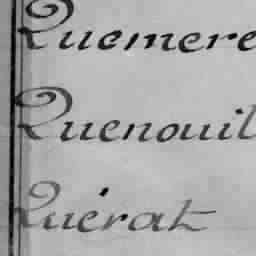 Quemere
Quenouil
Quérat